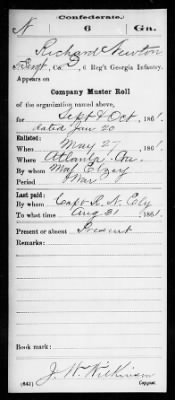 (Confederate.)
N 6 Ga.
Richard Newton
Sergt, Co. D, 6 Reg't Georgia Infantry.
Appears on
Company Muster Roll
of the organization named above,
for Sept & Oct, 1861.
dated Jan 20
Enlisted:
When May 27, 1861.
Where Atlanta Ga.
By whom Maj
Period War
Last paid:
By whom Capt R. N. Ely
To what time Aug 31, 1861.
Present or absent Present
Remarks:
Book mark:
J. W. Wilkinson
(642) Copyist.